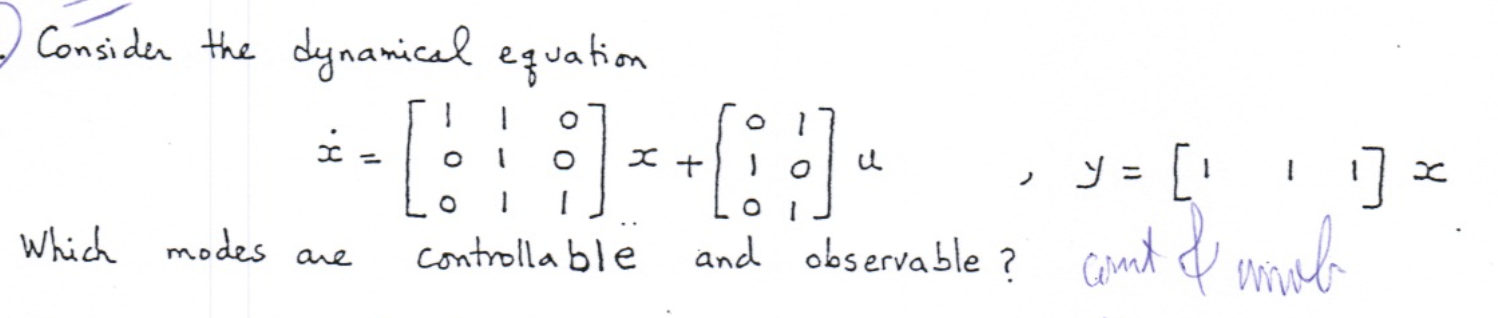 Consider the dynamical equation
ẋ = [1 1 0; 0 1 0; 0 1 1] x + [0 1; 1 0; 0 1] u , y = [1 1 1] x
Which modes are controllable and observable?